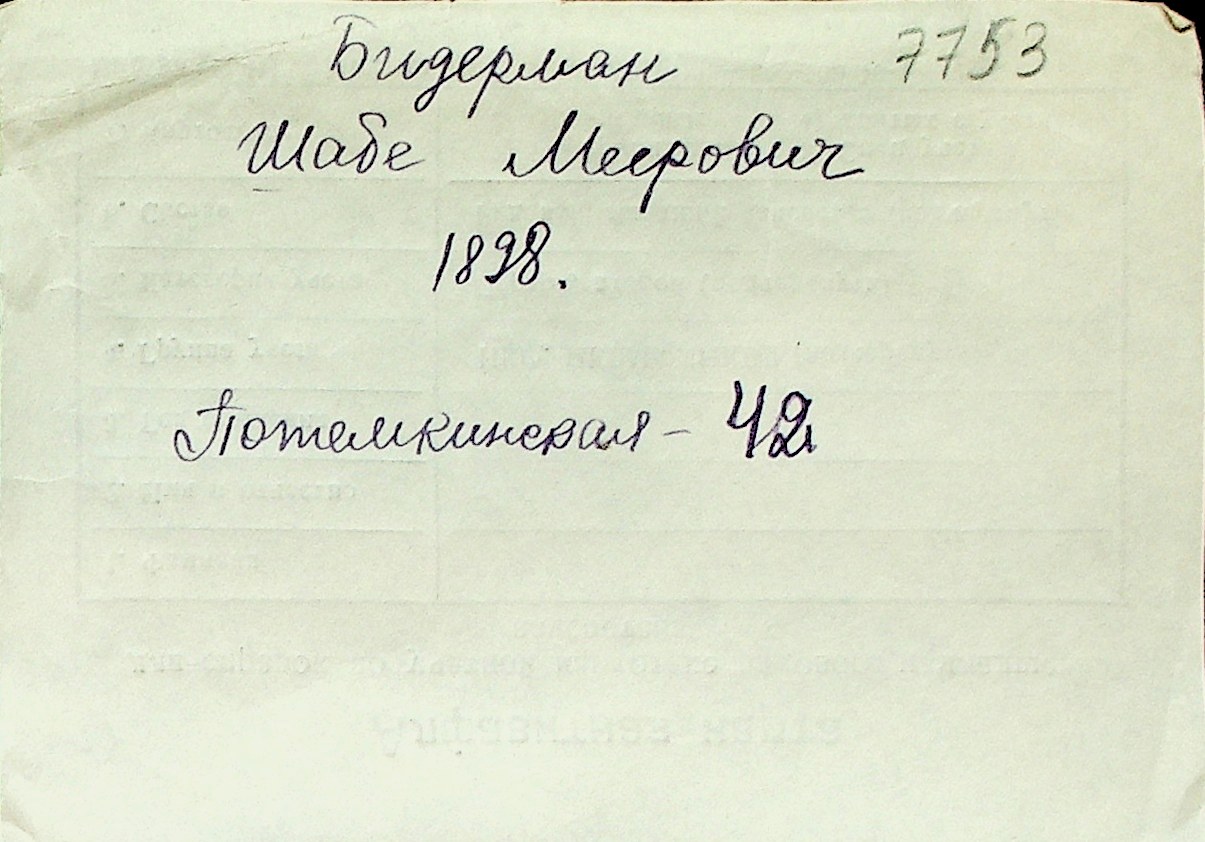 Бидерман 7753
Шабе Меерович
1898.
Потемкинская - 42